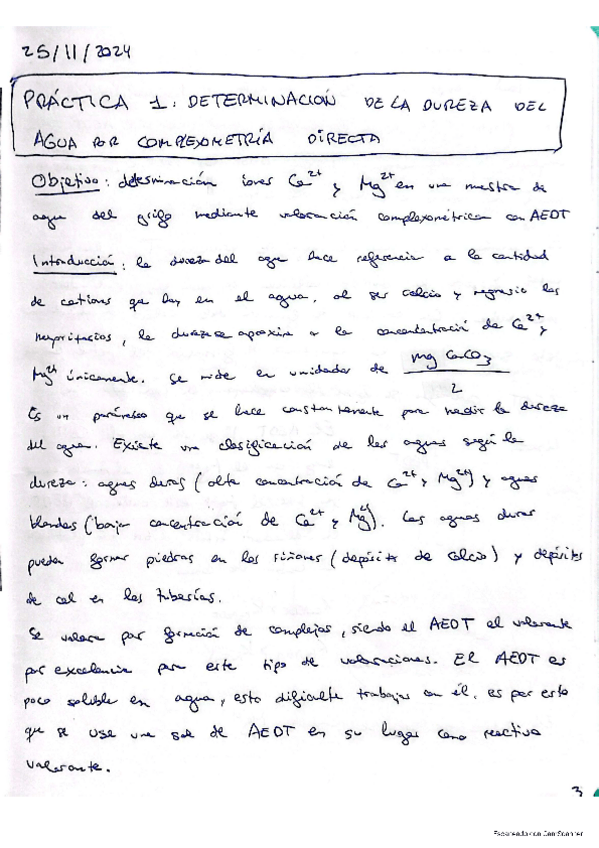 25/11/2024
PRÁCTICA 1: DETERMINACIÓN DE LA DUREZA DEL
AGUA POR COMPLEXOMETRÍA DIRECTA
Objetivo: determinación iones Ca²⁺ y Mg²⁺ en una muestra de
agua del grifo mediante valoración complexométrica con AEDT
Introducción: la dureza del agua hace referencia a la cantidad
de cationes que hay en el agua, al ser calcio y magnesio los
mayoritarios, la dureza se aproxima a la concentración de Ca²⁺ y
Mg²⁺ únicamente. Se mide en unidades de mg CaCO3
L
Es un parámetro que se hace constantemente para medir la dureza
del agua. Existe una clasificación de las aguas según la
dureza: aguas duras (alta concentración de Ca²⁺ y Mg²⁺) y aguas
blandas (baja concentración de Ca²⁺ y Mg²⁺). Las aguas duras
pueden formar piedras en los riñones (depósito de calcio) y depósitos
de cal en las tuberías.
Se valora por formación de complejos, siendo el AEDT el valorante
por excelencia para este tipo de valoraciones. El AEDT es
poco soluble en agua, esto dificulta trabajar con él, es por esto
que se usa una sal de AEDT en su lugar como reactivo
valorante.
3
Escaneado con CamScanner